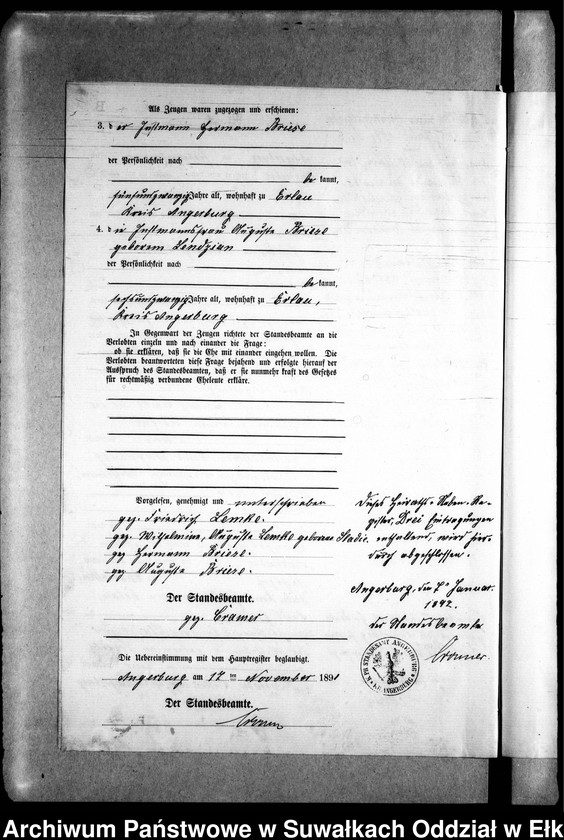 Als Zeugen waren zugezogen und erschienen:
3. der Instmann Hermann Briese
der Persönlichkeit nach
bekannt,
fünfundzwanzig Jahre alt, wohnhaft zu Erlau
Kreis Angerburg
4. die Instmannsfrau Auguste Briese
geborene Lendzian
der Persönlichkeit nach
bekannt,
sechsundzwanzig Jahre alt, wohnhaft zu Erlau,
Kreis Angerburg
In Gegenwart der Zeugen richtete der Standesbeamte an die
Verlobten einzeln und nach einander die Frage:
ob sie erklären, daß sie die Ehe mit einander eingehen wollen. Die
Verlobten beantworteten diese Frage bejahend und erfolgte hierauf der
Ausspruch des Standesbeamten, daß er sie nunmehr kraft des Gesetzes
für rechtmäßig verbundene Eheleute erkläre.
Vorgelesen, genehmigt und unterschrieben
gez. Friedrich Lemke.
gez. Wilhelmine, Auguste Lemke geborene
gez Hermann Briese.
gez Auguste Briese.
Der Standesbeamte.
gez. Cramer
Die Uebereinstimmung mit dem Hauptregister beglaubigt.
Angerburg am 17 ten November 1891
Der Standesbeamte.
Cramer
Dieses Heiraths-Neben-Re-
gister, Drei Eintragungen
enthaltend, wird hier-
durch abgeschlossen.
Angerburg, den Januar.
1892.
der Standesbeamte
Cramer.
K. PR. STANDESAMT ANGERBURG
KR. ANGERBURG
Archiwum Państwowe w Suwałkach Oddział w Ełk